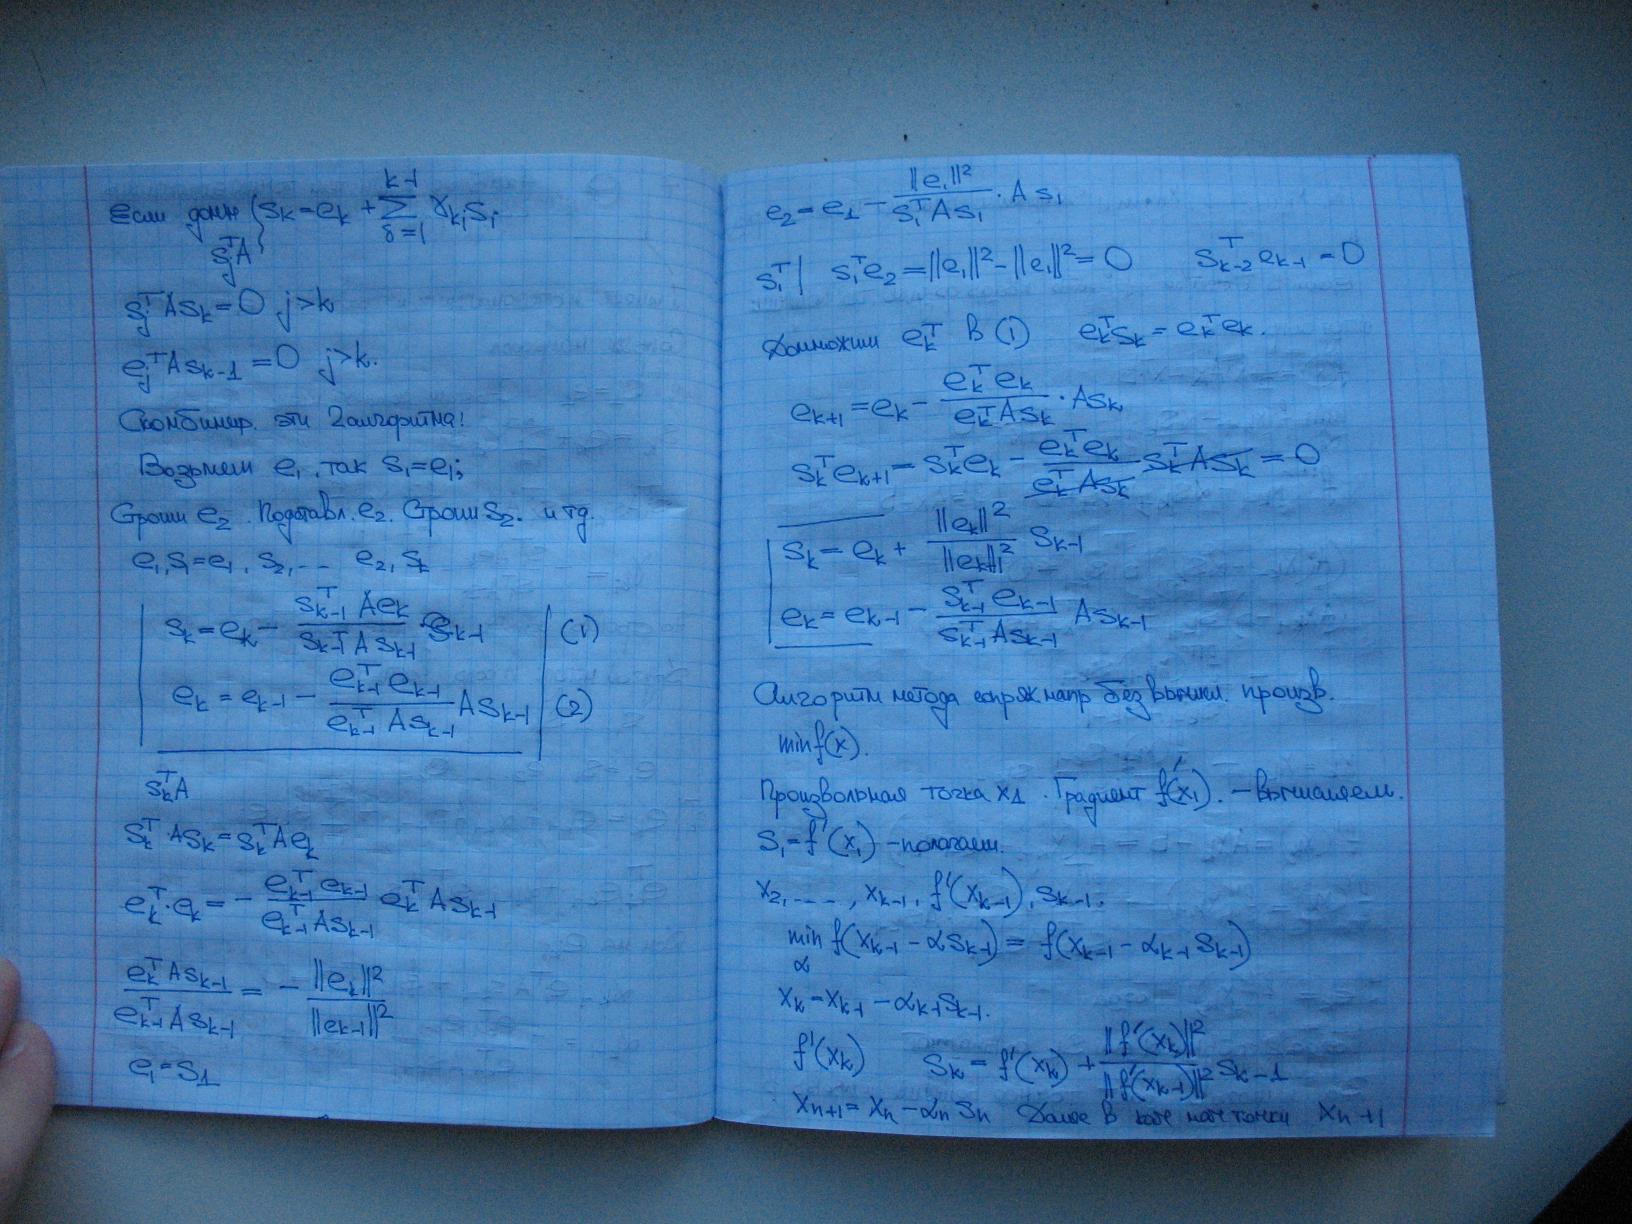 Если домн { s_k = e_k + \sum_{j=1}^{k-1} γ_{kj} s_j
s_j^T A
s_j^T A s_k = 0 j > k
e_j^T A s_{k-1} = 0 j > k.
Скомбинир. эти 2 алгоритма!
Возьмем e_1, так s_1 = e_1;
Строим e_2. Подставл. e_2. Строим s_2. и тд.
e_1, s_1 = e_1, s_2, ... e_2, s_k
s_k = e_k - \frac{s_{k-1}^T A e_k}{s_{k-1}^T A s_{k-1}} · s_{k-1} (1)
e_k = e_{k-1} - \frac{e_{k-1}^T e_{k-1}}{e_{k-1}^T A s_{k-1}} A s_{k-1} (2)
s_k^T A
s_k^T · A s_k = s_k^T A e_k
e_k^T · e_k = - \frac{e_{k-1}^T e_{k-1}}{e_{k-1}^T A s_{k-1}} e_k^T A s_{k-1}
\frac{e_k^T A s_{k-1}}{e_{k-1}^T A s_{k-1}} = - \frac{||e_k||^2}{||e_{k-1}||^2}
e_1 = s_1
e_2 = e_1 - \frac{||e_1||^2}{s_1^T A s_1} · A s_1
s_1^T | s_1^T e_2 = ||e_1||^2 - ||e_1||^2 = 0 s_{k-2}^T e_{k-1} = 0
Домножим e_k^T в (1) e_k^T s_k = e_k^T e_k.
e_{k+1} = e_k - \frac{e_k^T e_k}{e_k^T A s_k} · A s_k
s_k^T e_{k+1} = s_k^T e_k - \frac{e_k^T e_k}{e_k^T A s_k} s_k^T A s_k = 0
s_k = e_k + \frac{||e_k||^2}{||e_{k-1}||^2} s_{k-1}
e_k = e_{k-1} - \frac{s_{k-1}^T e_{k-1}}{s_{k-1}^T A s_{k-1}} A s_{k-1}
Алгоритм метода сопряж напр без вычисл. произв.
min f(x).
Произвольная точка x_1. Градиент f'(x_1). - вычисляем.
s_1 = f'(x_1) - полагаем.
x_2, ..., x_{k-1}, f'(x_{k-1}), s_{k-1}.
\min_α f(x_{k-1} - α s_{k-1}) = f(x_{k-1} - α_{k-1} s_{k-1})
x_k = x_{k-1} - α_{k-1} s_{k-1}.
f'(x_k) s_k = f'(x_k) + \frac{||f'(x_k)||^2}{||f'(x_{k-1})||^2} s_{k-1}
x_{n+1} = x_n - α_n s_n Далее в точки x_{n+1}